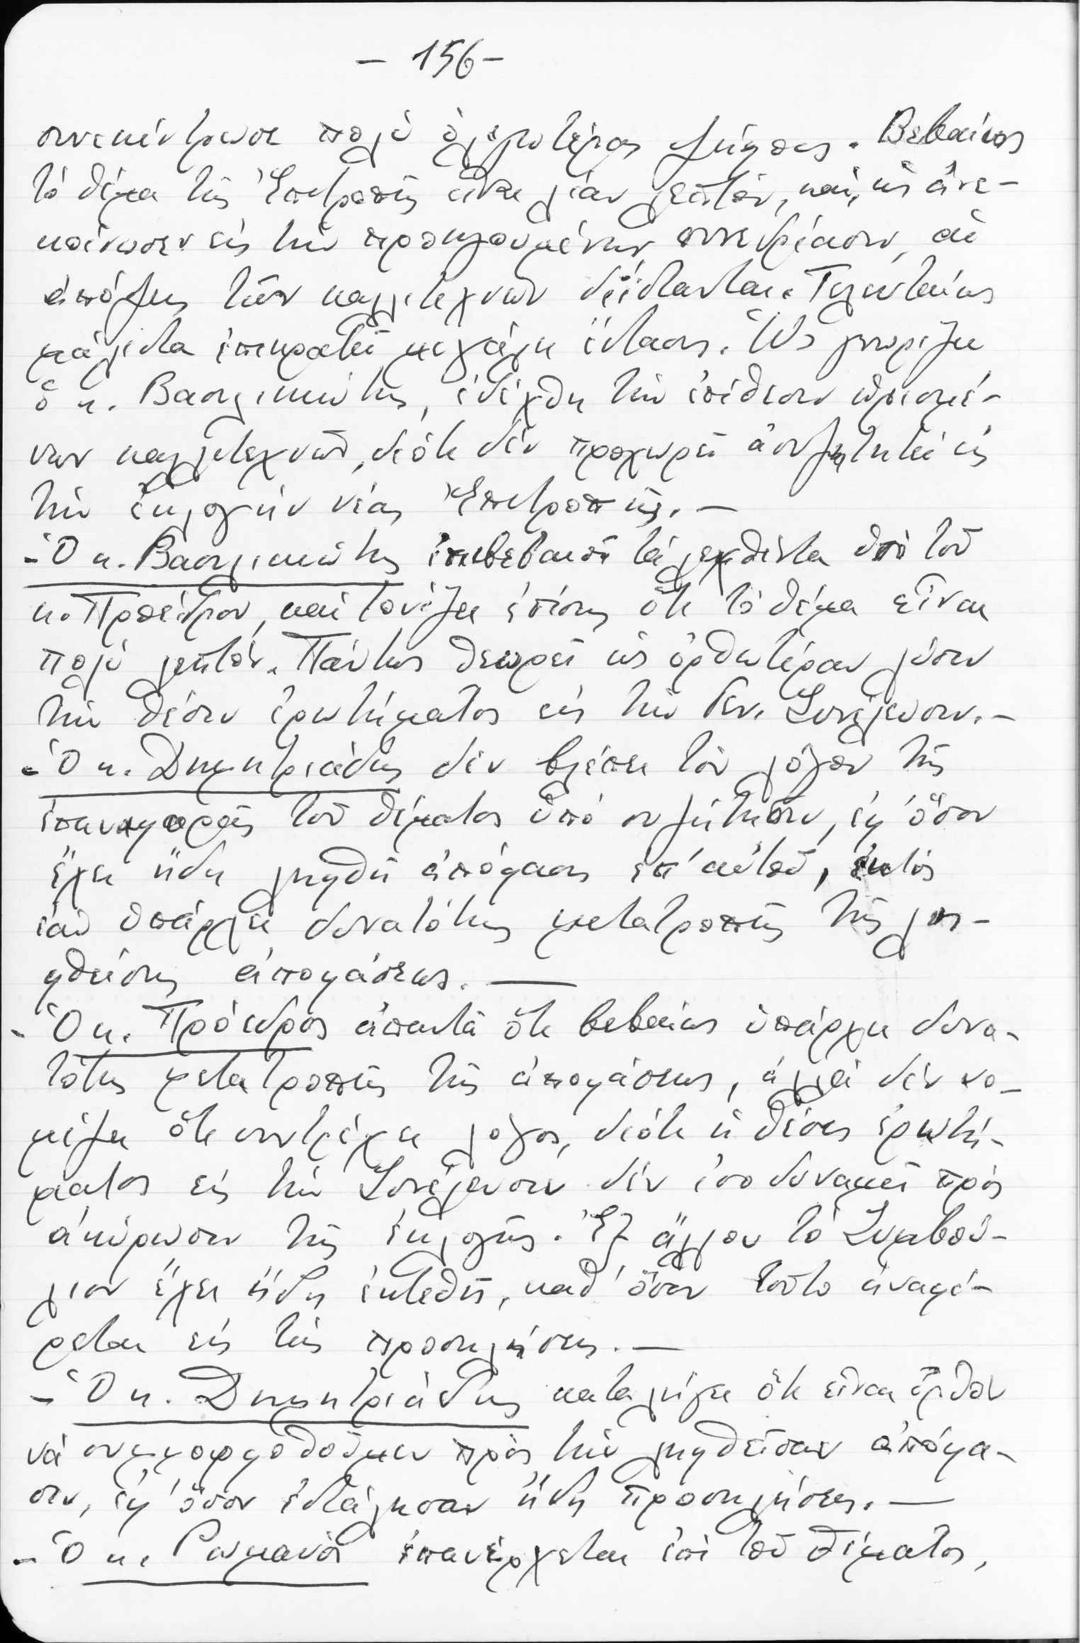 - 156 -
συνεκέντρωσε πολὺ ὀλιγωτέρας ψήφους. Βεβαίως
τὸ θέμα τῆς Ἐπιτροπῆς εἶναι λίαν λεπτόν, καί, ὡς ἀνε-
κοίνωσεν εἰς τὴν προηγουμένην συνεδρίασιν, αἱ
ἀπόψεις τῶν καλλιτεχνῶν διΐστανται. Τελευταίως
μάλιστα ἐπικρατεῖ μεγάλη ἔντασις. Ὡς γνωρίζει
ὁ κ. Βασιλικιώτης, ἐδέχθη τὴν ἐπίθεσιν ὡρισμέ-
νων καλλιτεχνῶν, διότι δὲν προχωρεῖ ἀσυζητητεὶ εἰς
τὴν ἐκλογὴν νέας Ἐπιτροπῆς. -
- Ὁ κ. Βασιλικιώτης ἐπιβεβαιοῖ τὰ λεχθέντα ὑπὸ τοῦ
κ. Προέδρου, καὶ τονίζει ἐπίσης ὅτι τὸ θέμα εἶναι
πολὺ λεπτόν. Πάντως θεωρεῖ ὡς ὀρθωτέραν λύσιν
τὴν θέσιν ἐρωτήματος εἰς τὴν Γεν. Συνέλευσιν. -
- Ὁ κ. Δημητριάδης δὲν βλέπει τὸν λόγον τῆς
ἐπαναφορᾶς τοῦ θέματος ὑπὸ συζήτησιν, ἐφ' ὅσον
ἔχει ἤδη ληφθῆ ἀπόφασις ἐπ' αὐτοῦ, ἐκτὸς
ἐὰν ὑπάρχει δυνατότης μετατροπῆς τῆς λη-
φθείσης ἀποφάσεως. -
- Ὁ κ. Πρόεδρος ἀπαντᾶ ὅτι βεβαίως ὑπάρχει δυνα-
τότης μετατροπῆς τῆς ἀποφάσεως, ἀλλὰ δὲν νο-
μίζει ὅτι συντρέχει λόγος, διότι ἡ θέσις ἐρωτή-
ματος εἰς τὴν Συνέλευσιν δὲν ἰσοδυναμεῖ πρὸς
ἀκύρωσιν τῆς ἐκλογῆς. Ἐξ ἄλλου τὸ Συμβού-
λιον ἔχει ἤδη ἐκτεθῆ, καθ' ὅσον τοῦτο ἀναφέ-
ρεται εἰς τὰς προσκλήσεις. -
- Ὁ κ. Δημητριάδης καταλήγει ὅτι εἶναι ὀρθὸν
νὰ συμμορφωθοῦμεν πρὸς τὴν ληφθεῖσαν ἀπόφα-
σιν, ἐφ' ὅσον ἐστάλησαν ἤδη προσκλήσεις. -
- Ὁ κ. Ρωμανὸς ἐπανέρχεται ἐπὶ τοῦ θέματος,